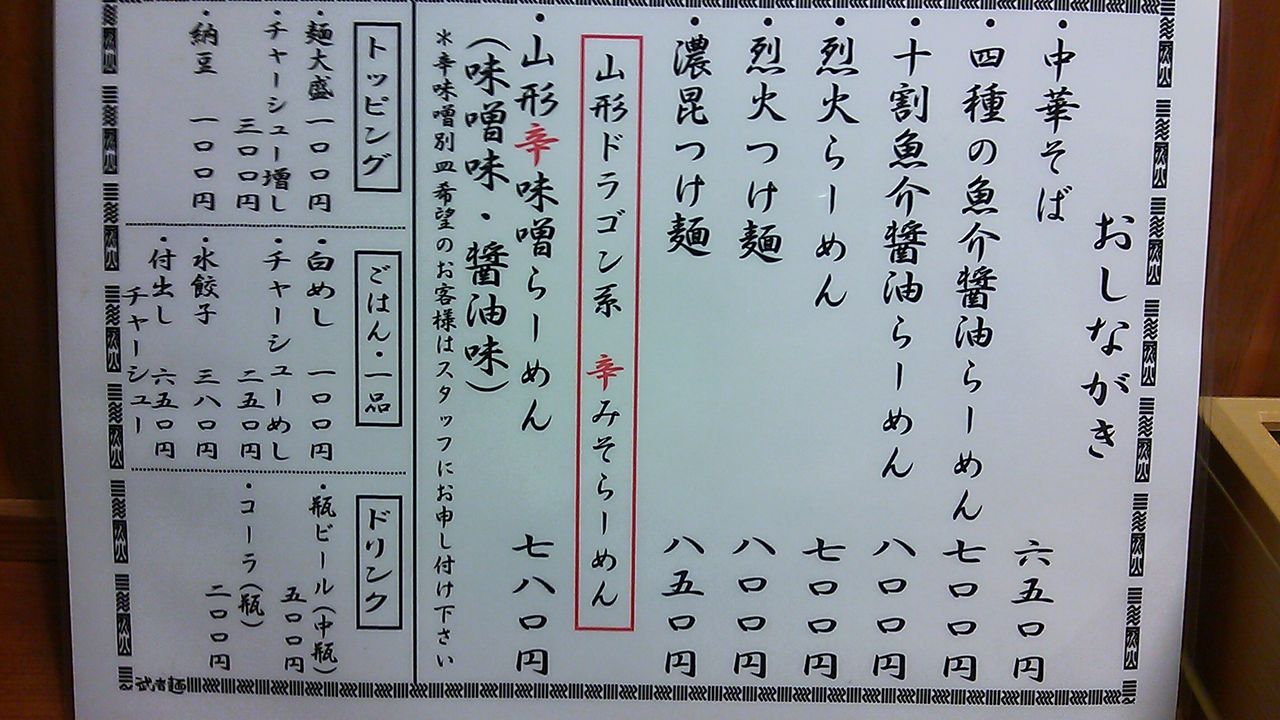 おしながき
・中華そば 六五〇円
・四種の魚介醤油らーめん 七〇〇円
・十割魚介醤油らーめん 八〇〇円
・烈火らーめん 七〇〇円
・烈火つけ麺 八〇〇円
・濃昆つけ麺 八五〇円
山形ドラゴン系 辛みそらーめん
・山形辛味噌らーめん 七八〇円
(味噌味・醤油味)
＊辛味噌別皿希望のお客様はスタッフにお申し付け下さい
トッピング
・麺大盛 一〇〇円
・チャーシュー増し
三〇〇円
・納豆 一〇〇円
ごはん・一品
・白めし 一〇〇円
・チャーシューめし
二五〇円
・水餃子 三八〇円
・付出し
チャーシュー
六五〇円
ドリンク
・瓶ビール(中瓶)
五〇〇円
・コーラ(瓶)
二〇〇円
武者麺